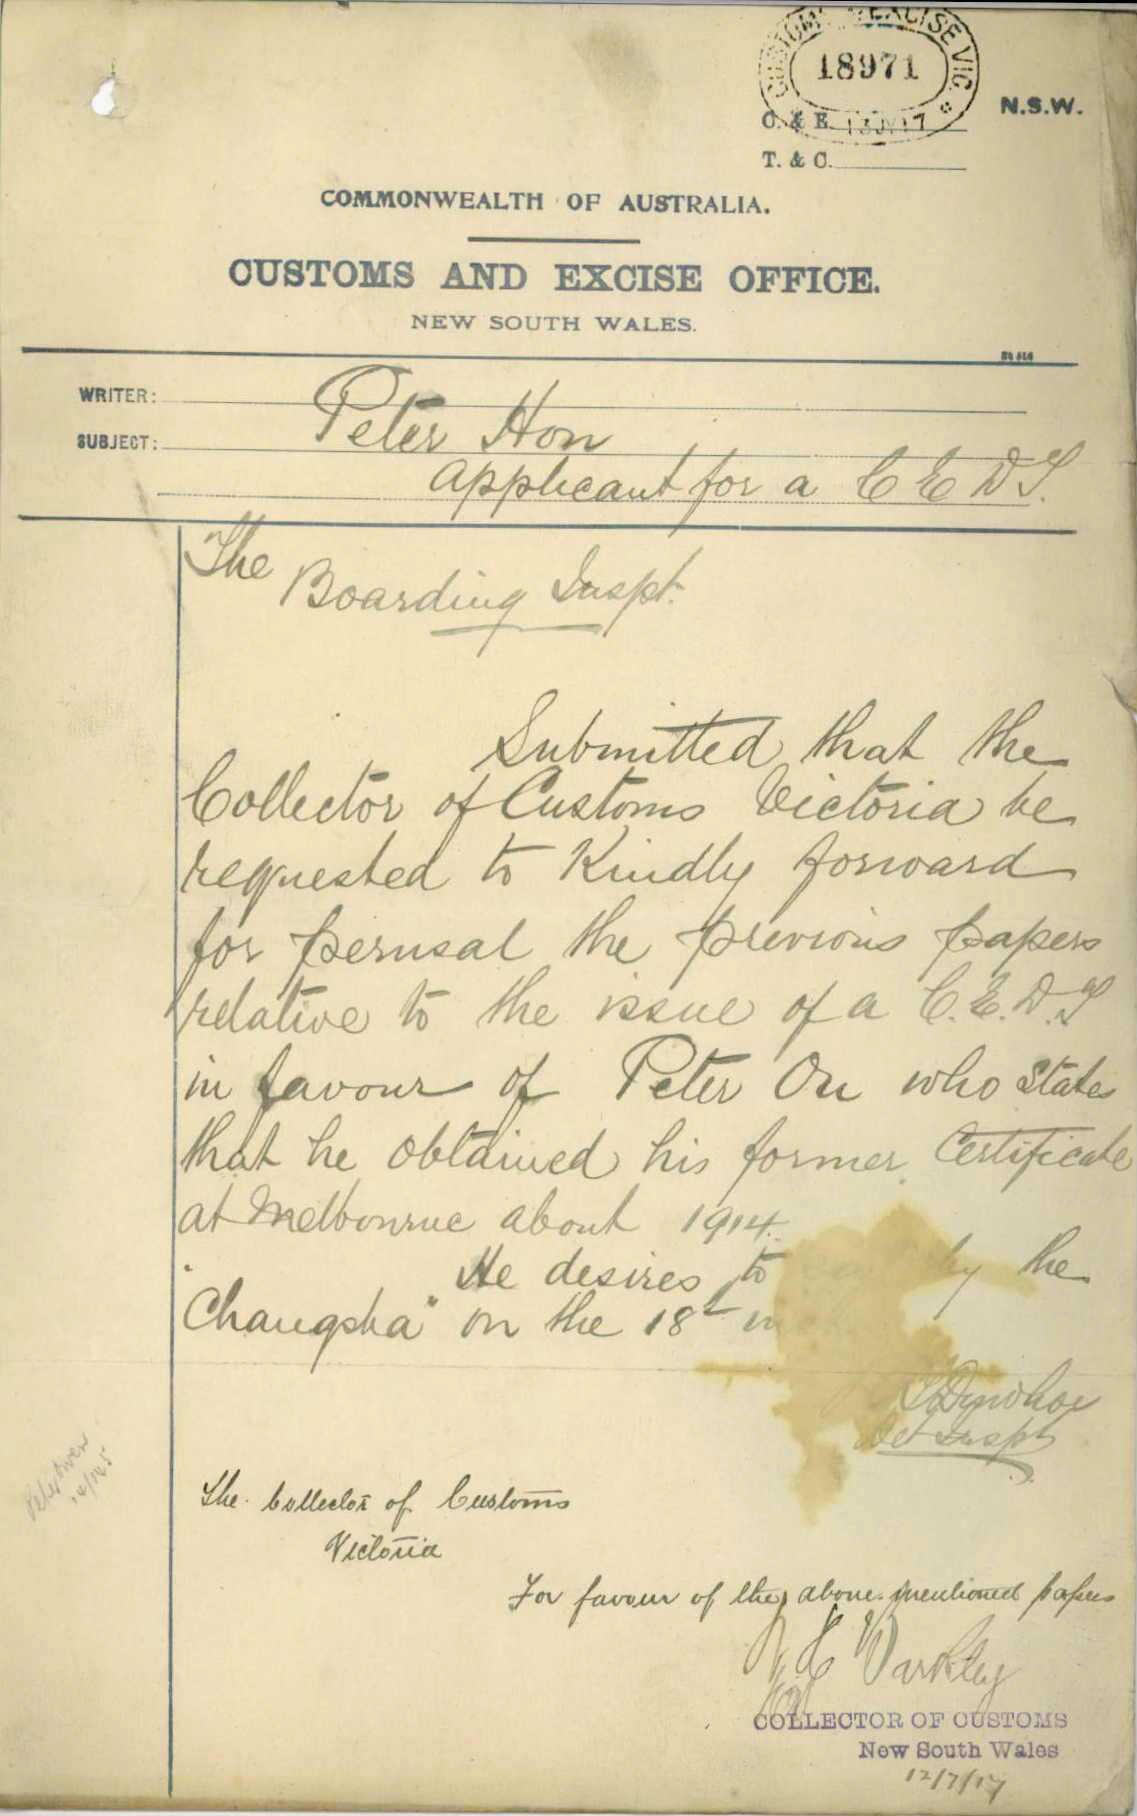 CUSTOMS & EXCISE VIC.
18971
N.S.W.
C. & E.
T. & C.
COMMONWEALTH OF AUSTRALIA.
CUSTOMS AND EXCISE OFFICE.
NEW SOUTH WALES.
WRITER:
SUBJECT:
Peter Hon
applicant for a C E D T.
The
Boarding Inspt.
Submitted that the
Collector of Customs Victoria be
requested to Kindly forward
for perusal the previous papers
relative to the issue of a C.E.D.T
in favour of Peter On who states
that he obtained his former Certificate
at Melbourne about 1914.
He desires to by the
"Changsha" on the 18th
Det Inspt
The Collector of Customs
Victoria
For favour of the above mentioned papers
COLLECTOR OF CUSTOMS
New South Wales
12/7/17